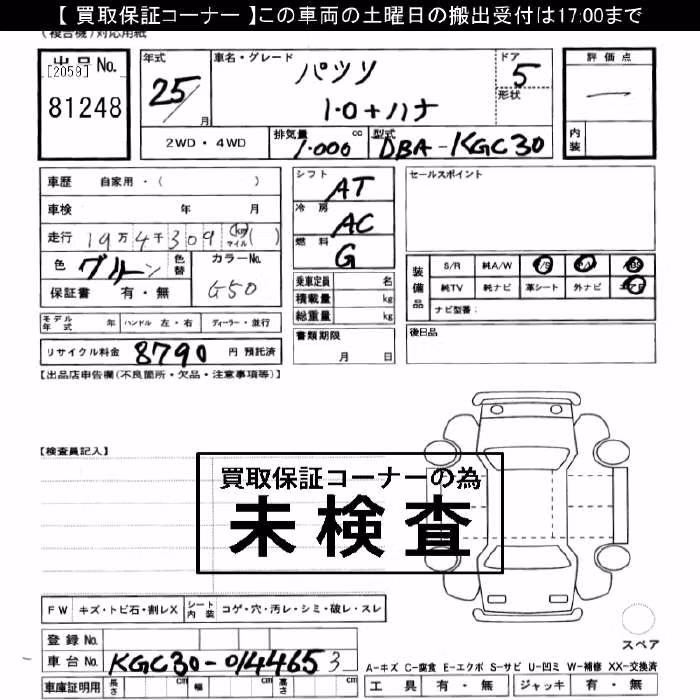 【 買取保証コーナー 】この車両の土曜日の搬出受付は17:00まで
(複合機)対応用紙
出品No.
[2059]
81248
年式
25/
月
車名・グレード
パッソ
1.0+ハナ
ドア
5
形状
評価点
一
内装
2WD・4WD
排気量
1.000 cc
型式
DBA-KGC30
車歴 自家用・( )
車検 年 月
走行 19万4千309 (km マイル)( )
色 グリーン
色替
カラーNo.
G50
保証書 有・無
シフト
AT
冷房
AC
燃料
G
乗車定員 名
積載量 kg
総重量 kg
書類期限
月 日
セールスポイント
装備品
S/R 純A/W P/S P/W ABS
純TV 純ナビ 革シート 外ナビ エアB
ナビ型番:
後日品
モデル年式 年 ハンドル 左・右 ディーラー・並行
リサイクル料金 8790 円 預託済
【出品店申告欄(不良箇所・欠品・注意事項等)】
【検査員記入】
買取保証コーナーの為
未検査
FW キズ・トビ石・割レX シート内装 コゲ・穴・汚レ・シミ・破レ・スレ
登録 No.
車台 No. KGC30-0144653
車庫証明用 長さ cm 幅 cm 高さ cm
スペア
A-キズ C-腐食 E-エクボ S-サビ U-凹ミ W-補修 XX-交換済
工具 有・無 ジャッキ 有・無